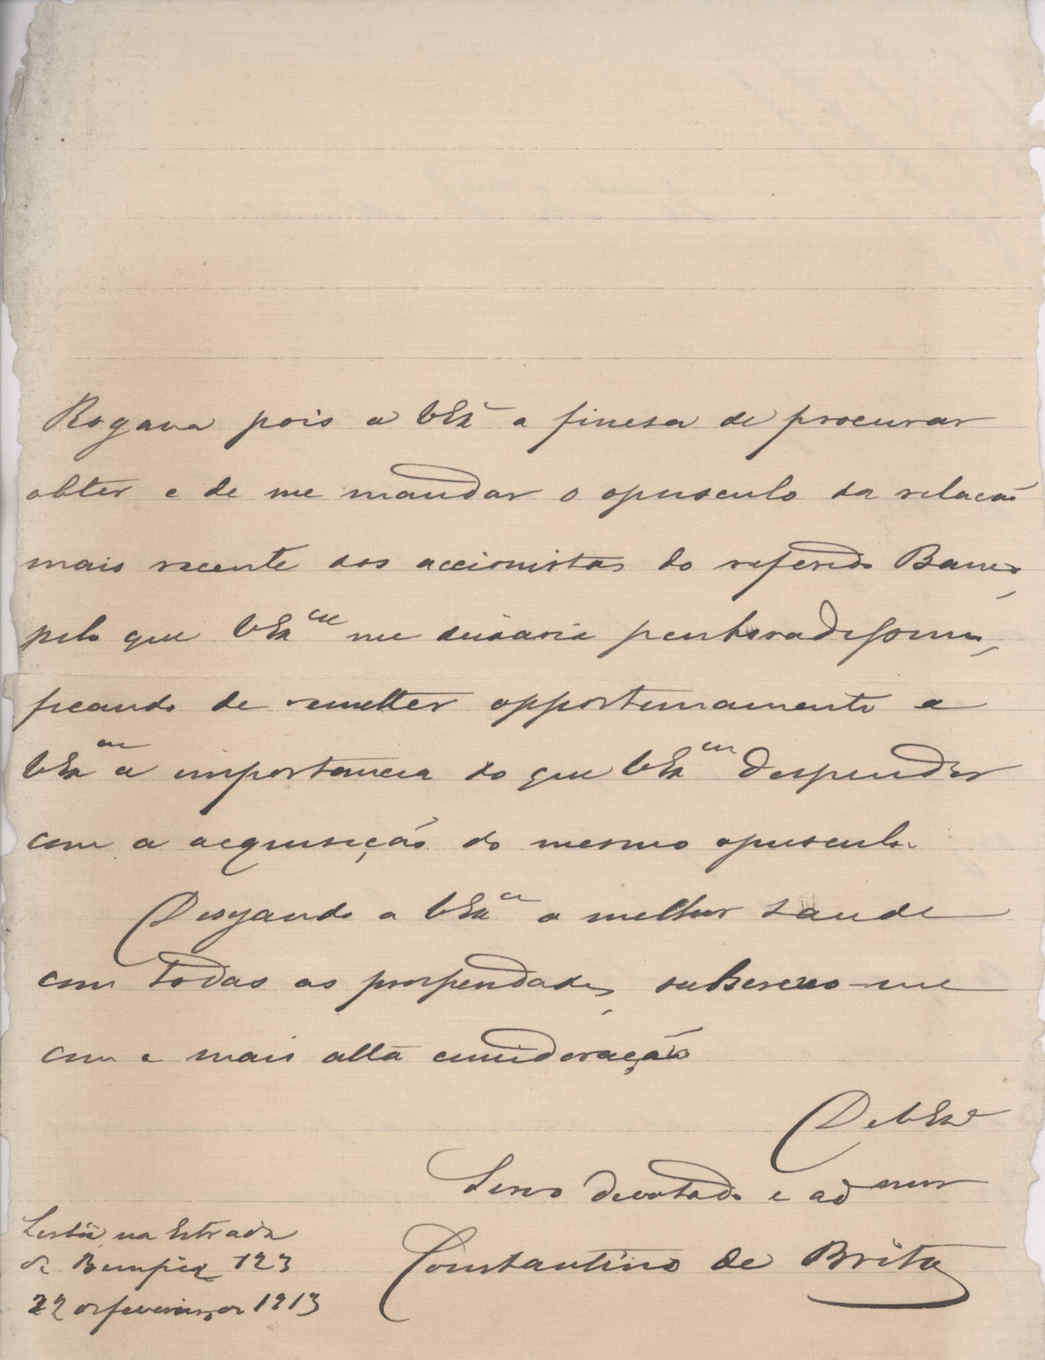 Rogava pois a VExª a finesa de procurar
obter e de me mandar o opusculo da relação
mais recente dos accionistas do referido Banco,
pelo que VExcia me deixaria penhoradissimo,
ficando de remetter opportunamente a
VExcia a importancia do que VExcia despender
com a acquisição do mesmo opusculo.
Desejando a VExcia a melhor saude
com todas as prosperidades, subscrevo-me
com a mais alta consideração
De VExª
Servo devotado e admor
Constantino de Brito
Lisboa na Estrada
de Bemfica 123
22 de fevereiro de 1913